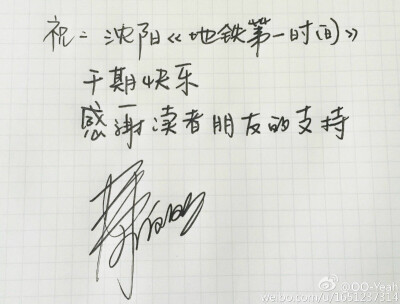 祝：沈阳《地铁第一时间》
千期快乐
感谢读者朋友的支持
@QO-Yeah
weibo.com/u/1691237314